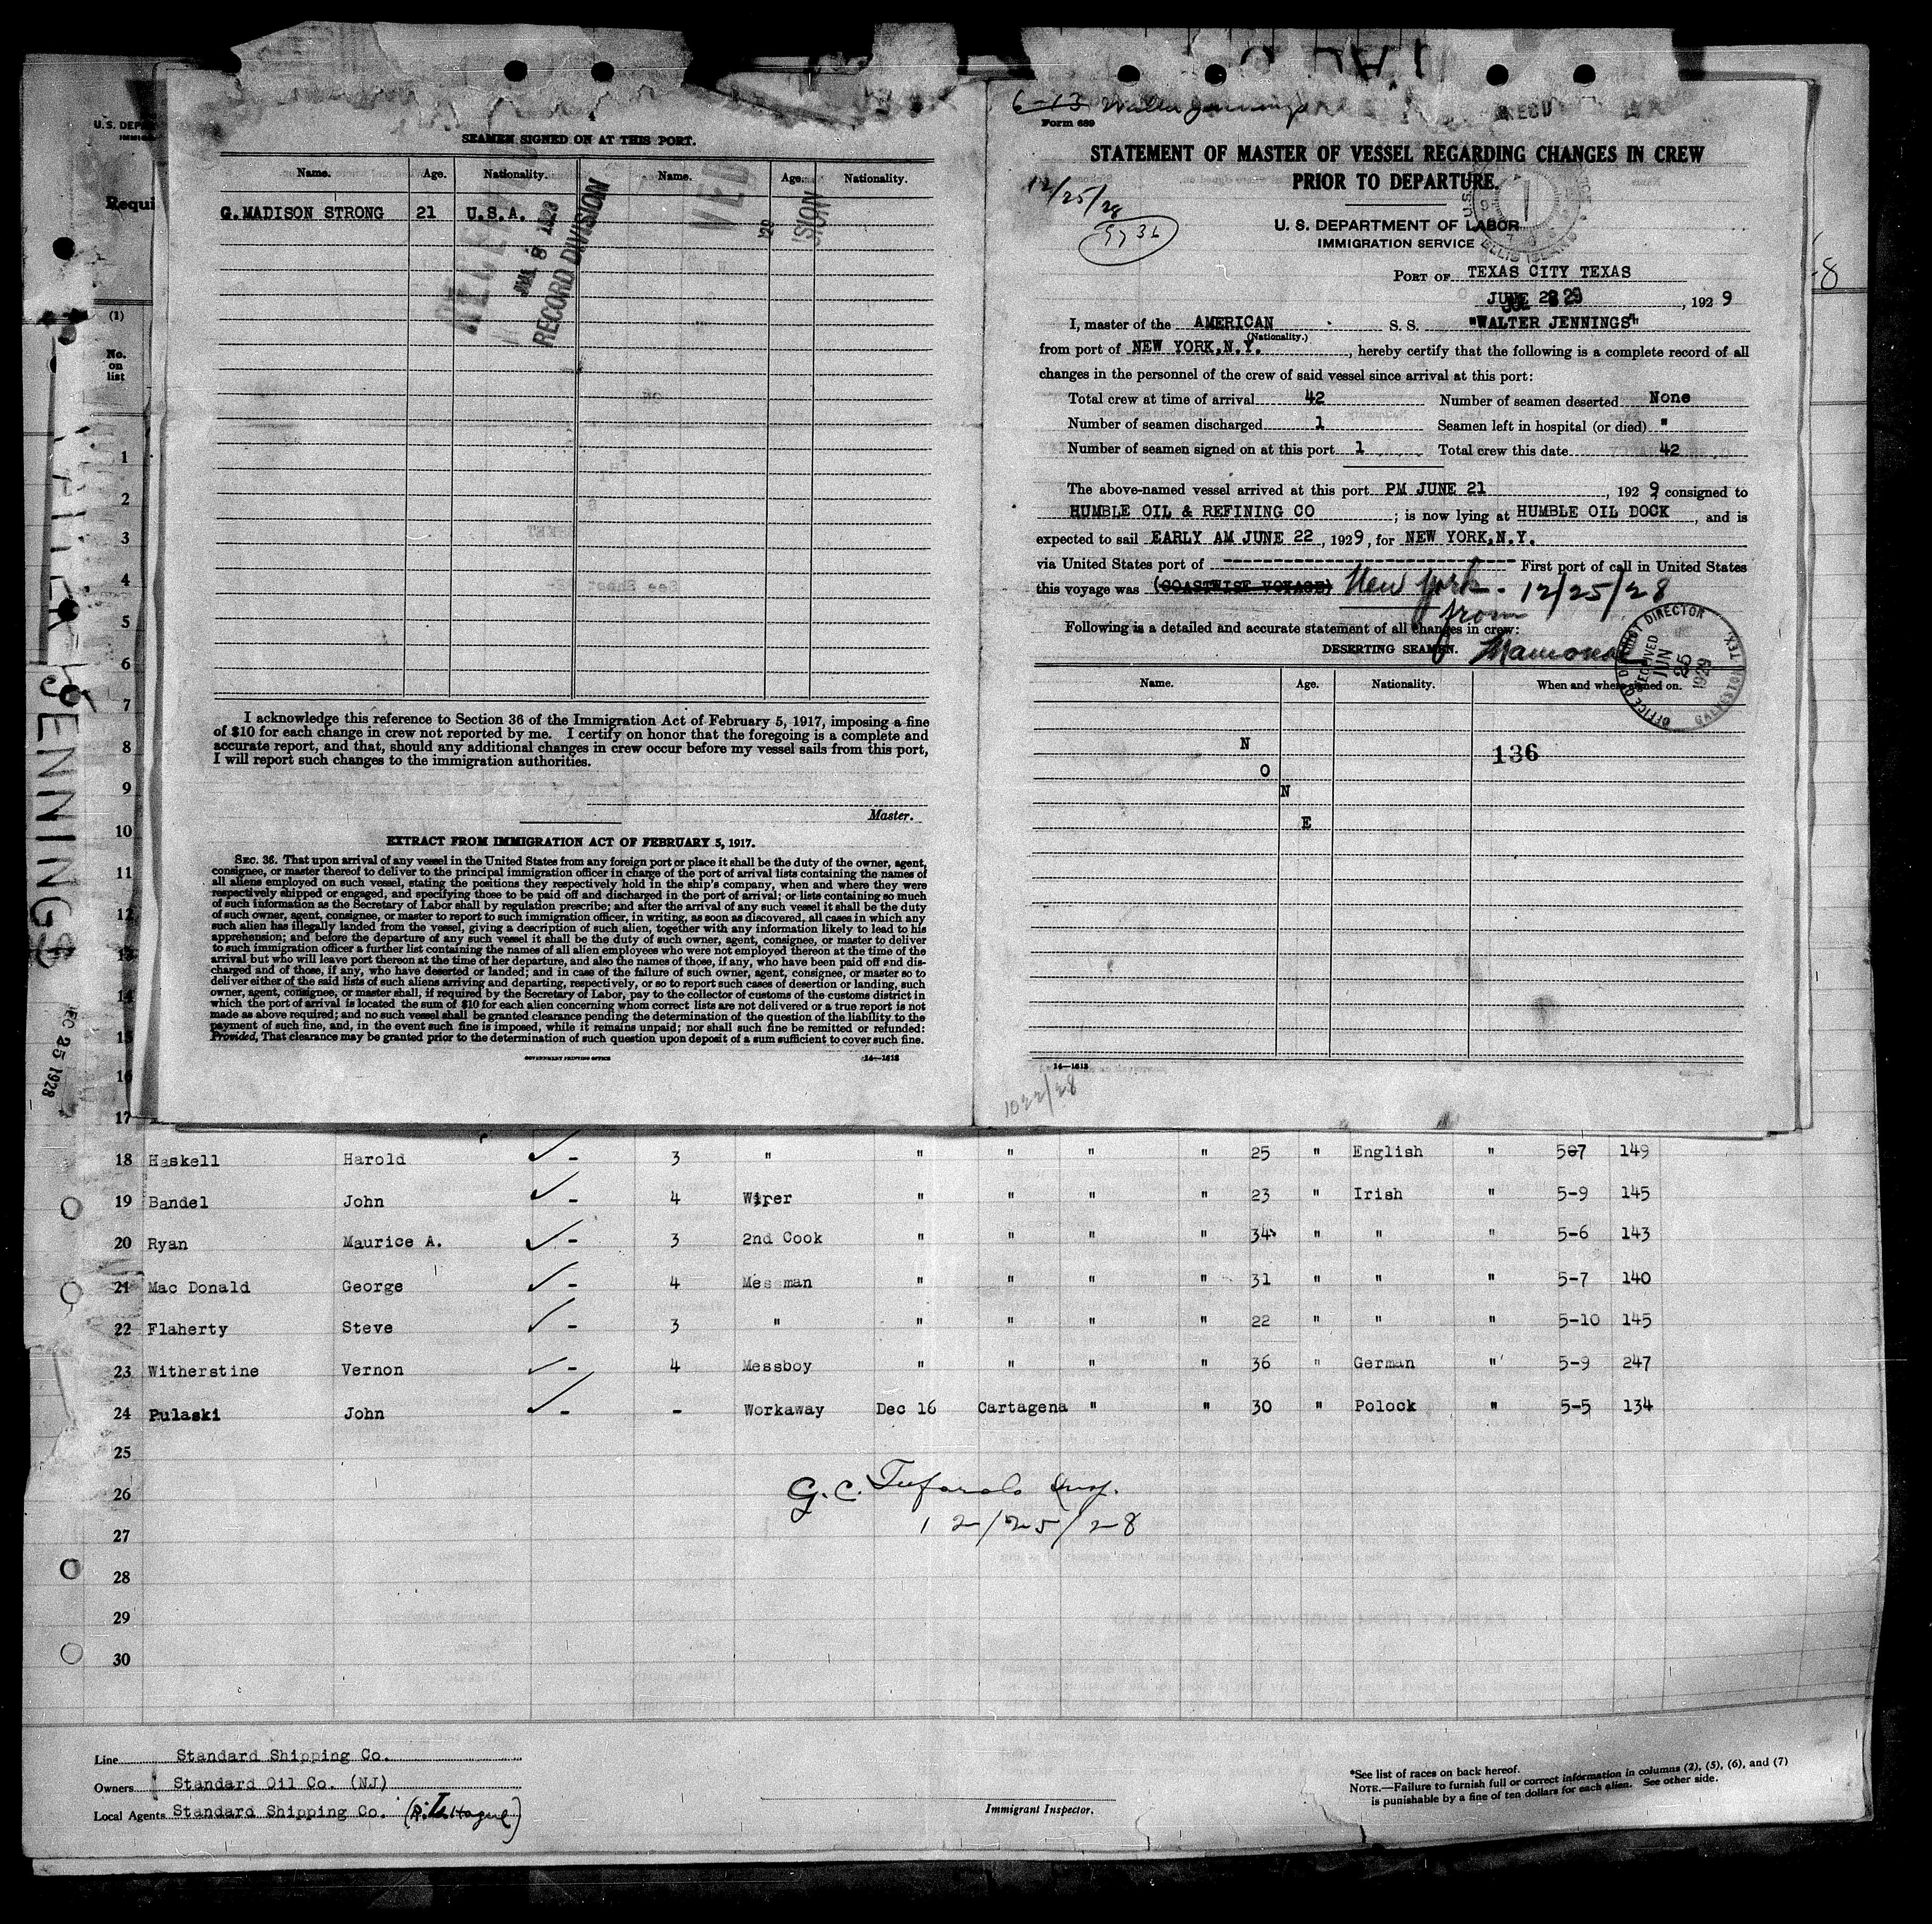 U.S. DEP
IMMIG
Requi
(1)
No.
on
list
WALTER JENNINGS
DEC 25 1928
SEAMEN SIGNED ON AT THIS PORT.
Name. Age. Nationality. Name. Age. Nationality.
G. MADISON STRONG 21 U.S.A.
RECORD DIVISION
I acknowledge this reference to Section 36 of the Immigration Act of February 5, 1917, imposing a fine
of $10 for each change in crew not reported by me. I certify on honor that the foregoing is a complete and
accurate report, and that, should any additional changes in crew occur before my vessel sails from this port,
I will report such changes to the immigration authorities.
Master.
EXTRACT FROM IMMIGRATION ACT OF FEBRUARY 5, 1917.
SEC. 36. That upon arrival of any vessel in the United States from any foreign port or place it shall be the duty of the owner, agent,
consignee, or master thereof to deliver to the principal immigration officer in charge of the port of arrival lists containing the names of
all aliens employed on such vessel, stating the positions they respectively hold in the ship's company, when and where they were
respectively shipped or engaged, and specifying those to be paid off and discharged in the port of arrival; or lists containing so much
of such information as the Secretary of Labor shall by regulation prescribe; and after the arrival of any such vessel it shall be the duty
of such owner, agent, consignee, or master to report to such immigration officer, in writing, as soon as discovered, all cases in which any
such alien has illegally landed from the vessel, giving a description of such alien, together with any information likely to lead to his
apprehension; and before the departure of any such vessel it shall be the duty of such owner, agent, consignee, or master to deliver
to such immigration officer a further list containing the names of all alien employees who were not employed thereon at the time of the
arrival but who will leave port thereon at the time of her departure, and also the names of those, if any, who have been paid off and dis-
charged and of those, if any, who have deserted or landed; and in case of the failure of such owner, agent, consignee, or master so to
deliver either of the said lists of such aliens arriving and departing, respectively, or so to report such cases of desertion or landing, such
owner, agent, consignee, or master shall, if required by the Secretary of Labor, pay to the collector of customs of the customs district in
which the port of arrival is located the sum of $10 for each alien concerning whom correct lists are not delivered or a true report is not
made as above required; and no such vessel shall be granted clearance pending the determination of the question of the liability to the
payment of such fine, and, in the event such fine is imposed, while it remains unpaid; nor shall such fine be remitted or refunded:
Provided, That clearance may be granted prior to the determination of such question upon deposit of a sum sufficient to cover such fine.
GOVERNMENT PRINTING OFFICE 14—1613
6-13 Walter Jennings
RECD
Form 689
STATEMENT OF MASTER OF VESSEL REGARDING CHANGES IN CREW
PRIOR TO DEPARTURE.
12/25/28
U. S. DEPARTMENT OF LABOR
IMMIGRATION SERVICE
PORT OF TEXAS CITY TEXAS
, 192 9
I, master of the AMERICAN S. S. "WALTER JENNINGS"
(Nationality.)
from port of NEW YORK.N.Y. , hereby certify that the following is a complete record of all
changes in the personnel of the crew of said vessel since arrival at this port:
Total crew at time of arrival 42 Number of seamen deserted None
Number of seamen discharged 1 Seamen left in hospital (or died) "
Number of seamen signed on at this port 1 Total crew this date 42
The above-named vessel arrived at this port PM JUNE 21 , 192 9 consigned to
HUMBLE OIL & REFINING CO ; is now lying at HUMBLE OIL DOCK , and is
expected to sail EARLY AM JUNE 22 , 1929, for NEW YORK.N.Y.
via United States port of ---------------- First port of call in United States
this voyage was (COASTWISE VOYAGE) New York - 12/25/28
from
Following is a detailed and accurate statement of all changes in crew:
DESERTING SEAMEN. Mamonal
OFFICE OF DISTRICT DIRECTOR RECEIVED JUN 25 1929 GALVESTON TEX.
Name. Age. Nationality. When and where signed on.
136
N
O
N
E
14—1613
1022/28
1
2
3
4
5
6
7
8
9
10
11
12
13
14
15
16
17
18 Haskell Harold - 3 " " " " " 25 " English " 5-7 149
19 Bandel John - 4 Wiper " " " " 23 " Irish " 5-9 145
20 Ryan Maurice A. - 3 2nd Cook " " " " 34 " " " 5-6 143
21 Mac Donald George - 4 Messman " " " " 31 " " " 5-7 140
22 Flaherty Steve - 3 " " " " " 22 " " " 5-10 145
23 Witherstine Vernon - 4 Messboy " " " " 36 " German " 5-9 247
24 Pulaski John - - Workaway Dec 16 Cartagena " " 30 " Polock " 5-5 134
25
26
27
28
29
30
G. C. Insp.
12/25/28
Line Standard Shipping Co.
Owners Standard Oil Co. (NJ)
Local Agents Standard Shipping Co.
Immigrant Inspector.
*See list of races on back hereof.
NOTE.—Failure to furnish full or correct information in columns (2), (5), (6), and (7)
is punishable by a fine of ten dollars for each alien. See other side.